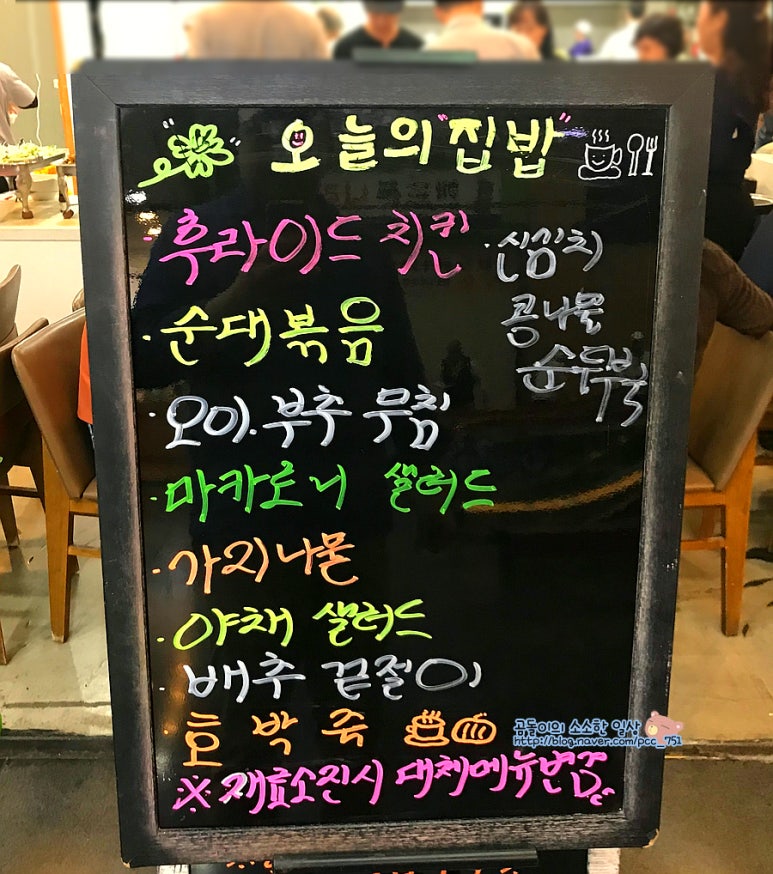 오늘의 "집밥"
후라이드 치킨
· 순대볶음
· 오이.부추 무침
· 마카로니 샐러드
· 가지나물
· 야채 샐러드
· 배추 끋절이
호 박 죽
※ 재료소진시 대체메뉴변경
· 신김치
콩나물
순두부국
곰돌이의 소소한 일상
http://blog.naver.com/pcc_751